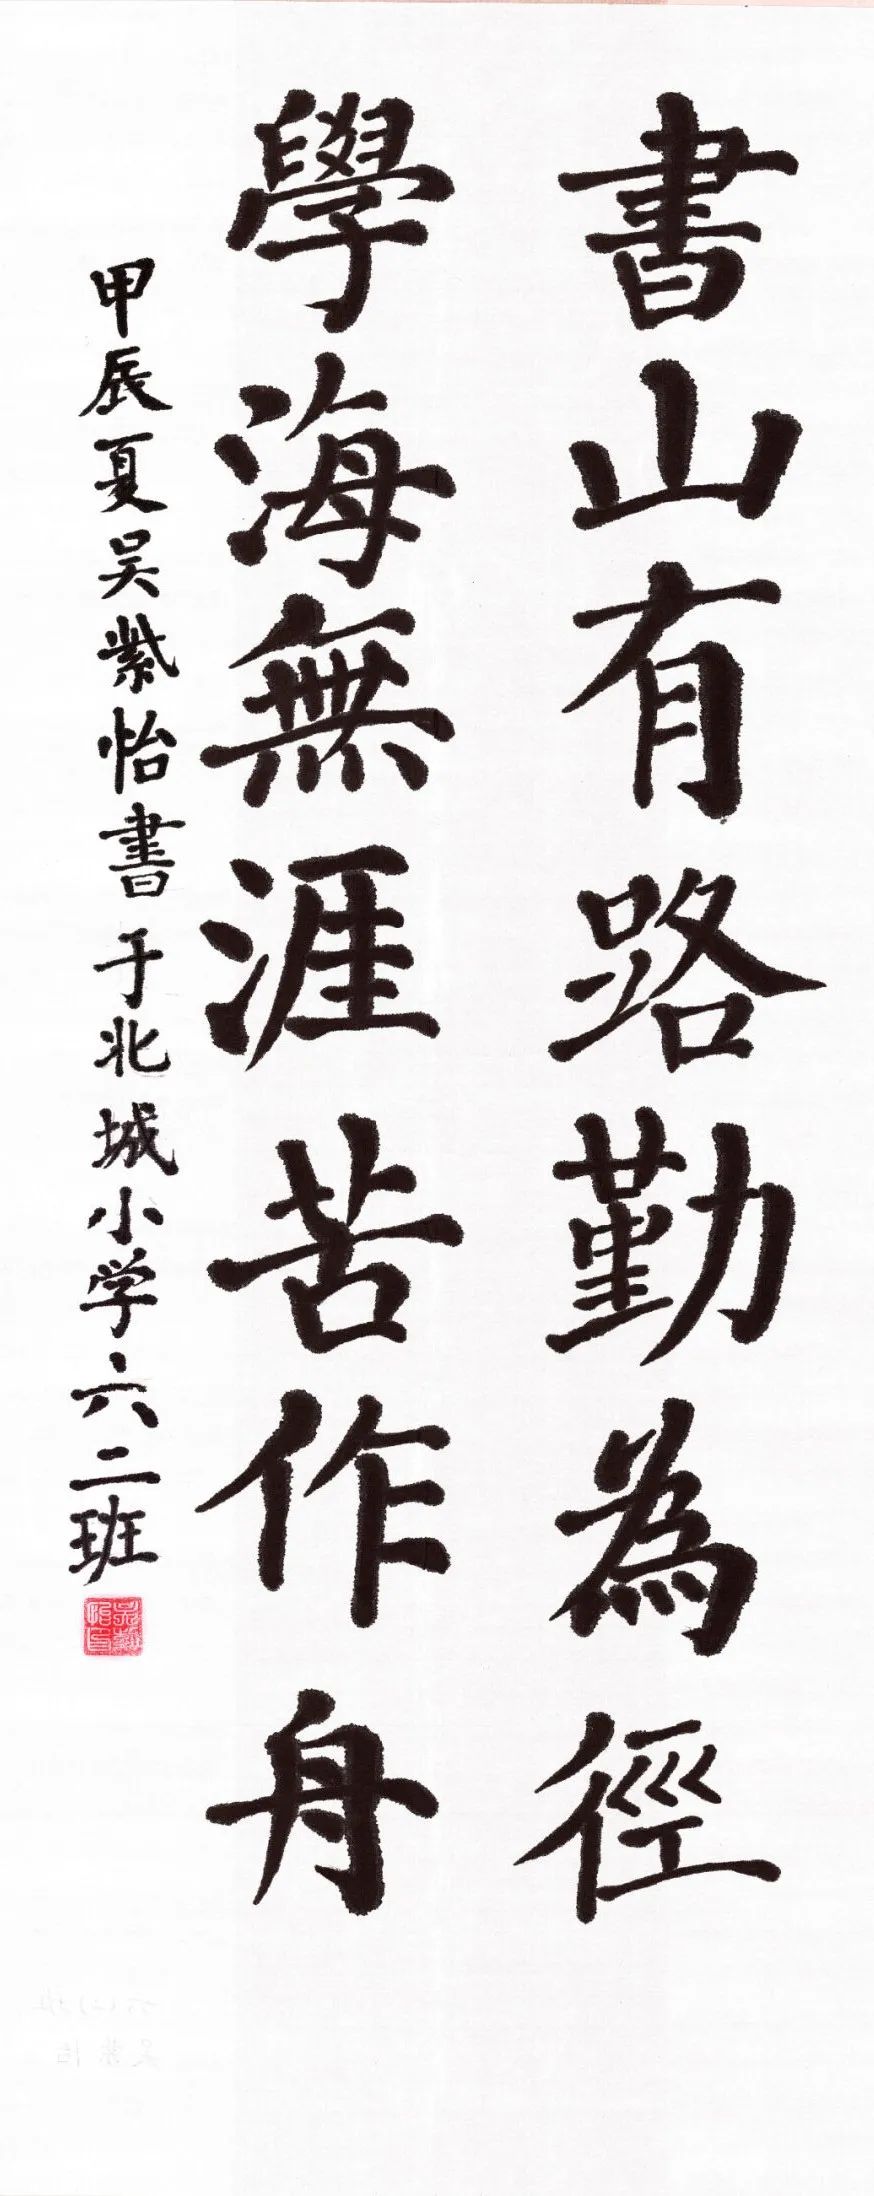 書山有路勤為徑
學海無涯苦作舟
甲辰夏吴紫怡書于北城小学六二班